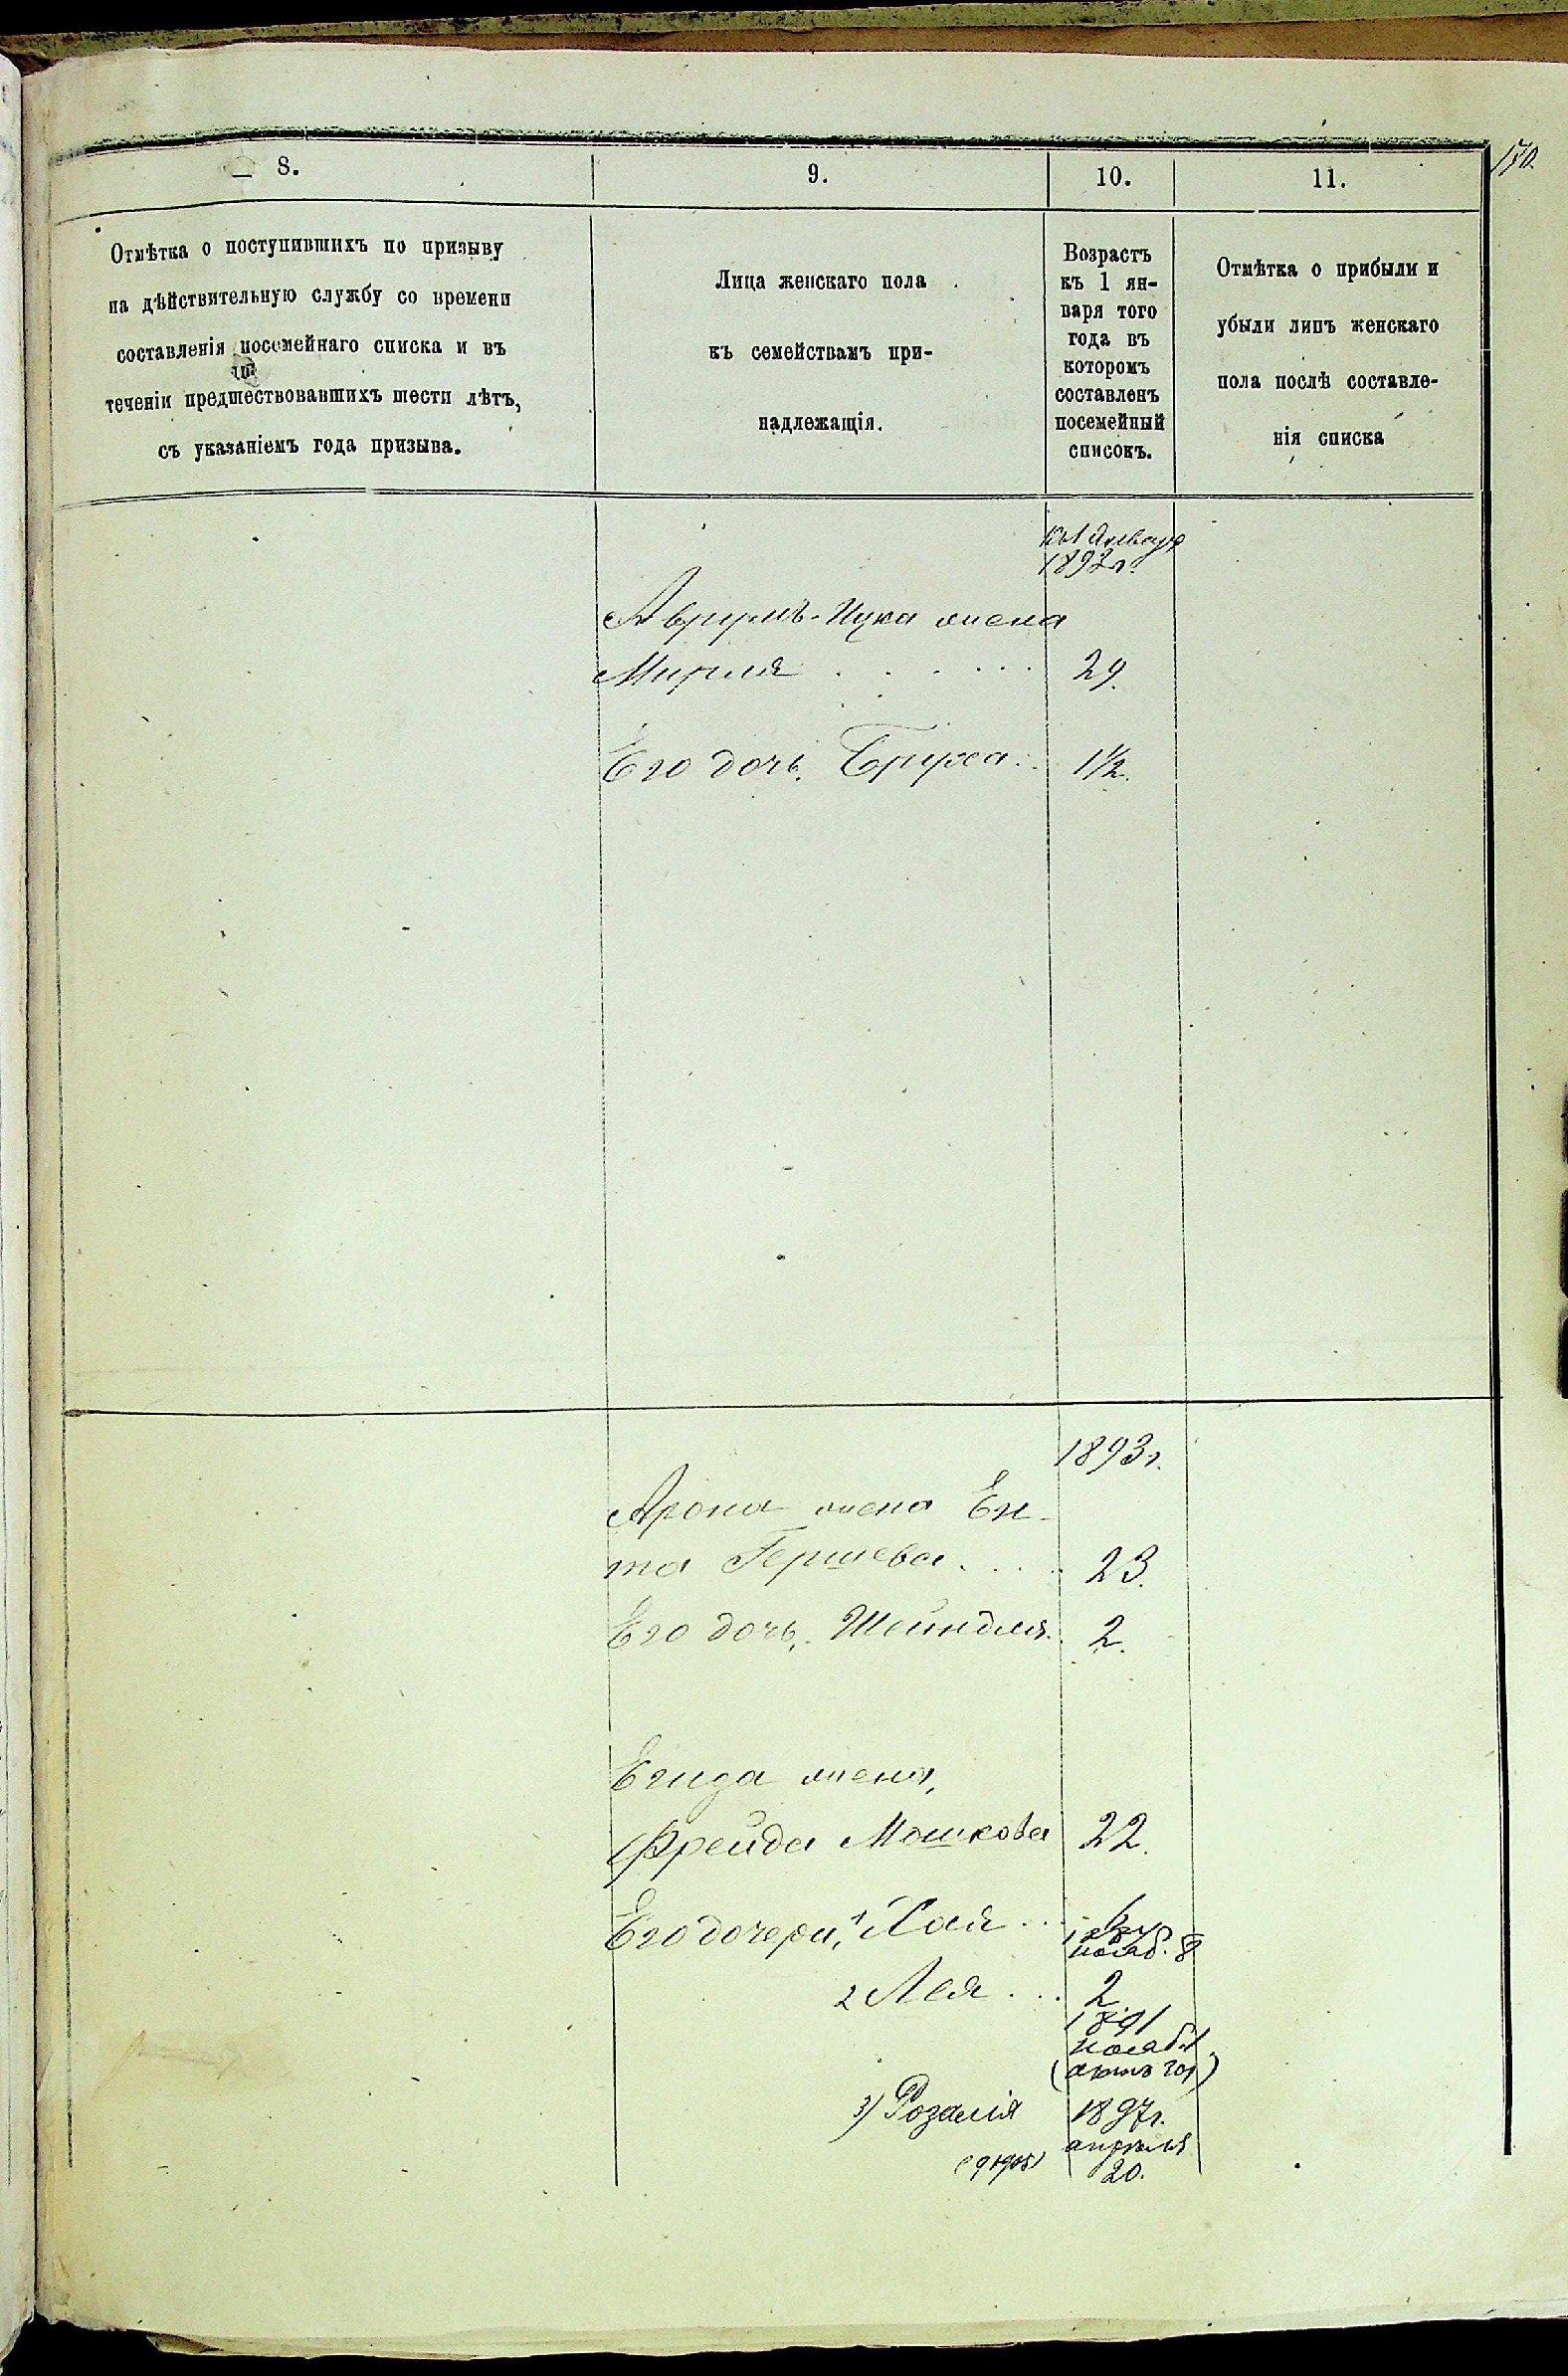 170.
8.
9.
10.
11.
Отмѣтка о поступившихъ по призыву
на дѣйствительную службу со времени
составленія посемейнаго списка и въ
теченіи предшествовавшихъ шести лѣтъ,
съ указаніемъ года призыва.
Лица женскаго пола
къ семействамъ при-
надлежащія.
Возрастъ
къ 1 ян-
варя того
года въ
которомъ
составленъ
посемейный
списокъ.
Отмѣтка о прибыли и
убыли лицъ женскаго
пола послѣ составле-
нія списка
къ 1 Января
1892 г.
Аврумъ-Ицка жена
Мирля . . . . . . 29.
Его дочь, Бруха . . 1½.
1893 г.
Арона жена Ен-
та Гершева . . . . 23.
Его дочь, Шейндля . 2.
жена,
Фрейда Мошкова 22.
Его дочери, 1 Хая . . .
нояб. 8
2 Лея . . . 2.
1891
нояб. 1
3) Розалія 1897 г.
апрѣля
20.